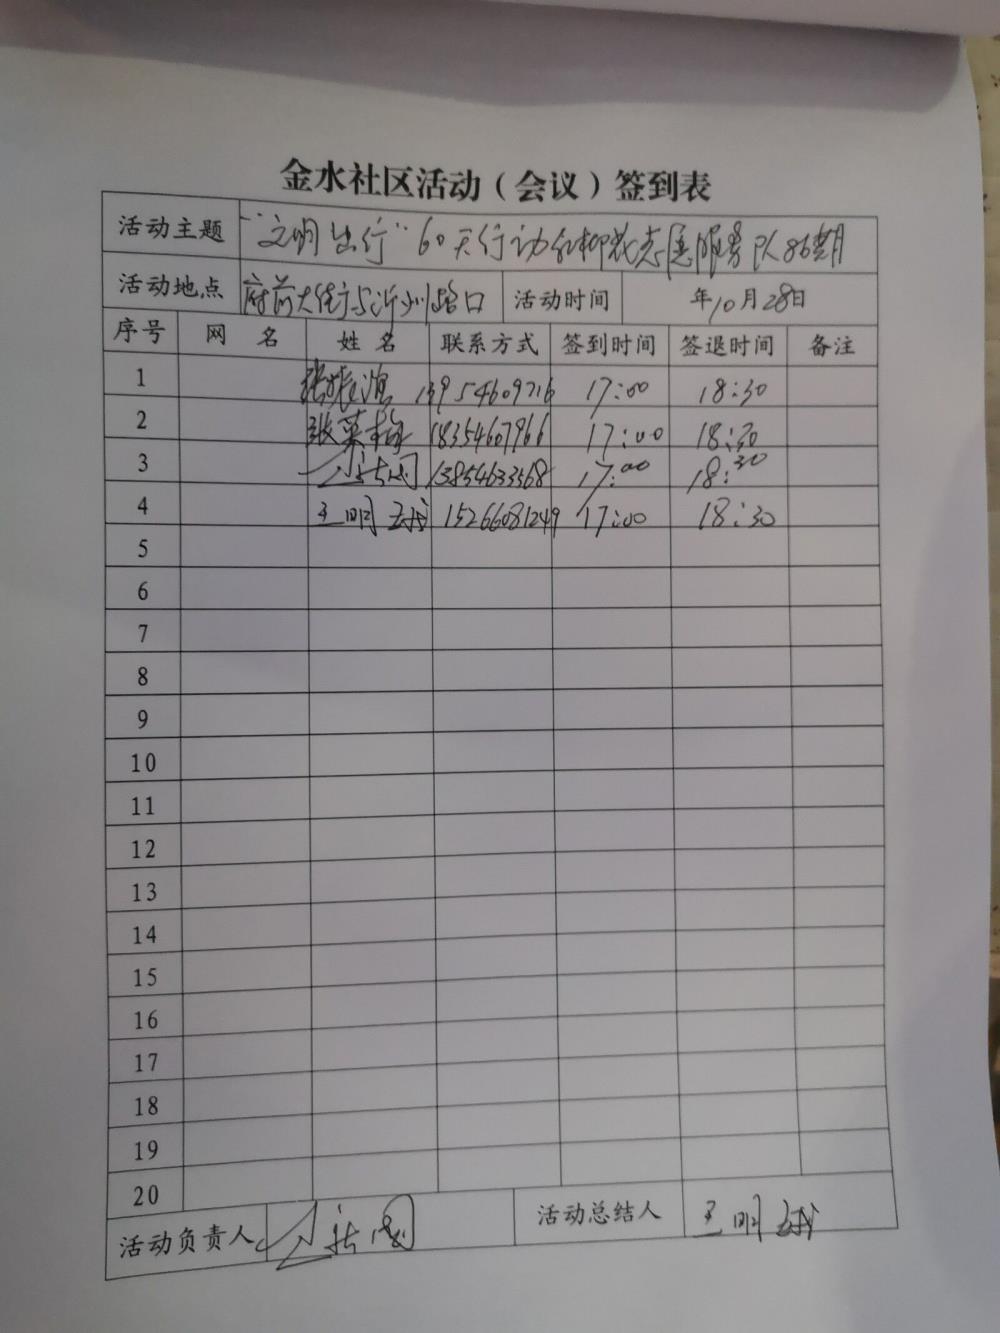 金水社区活动（会议）签到表
活动主题 "文明出行"60天行动 志愿服务队86期
活动地点 府前大街与沂州路口 活动时间 年10月28日
序号 网 名 姓 名 联系方式 签到时间 签退时间 备注
1 13954609716 17:00 18:30
2 张菜梅 18354607966 17:00 18:30
3 13854633568 17:00 18:30
4 王明 15266081249 17:00 18:30
5
6
7
8
9
10
11
12
13
14
15
16
17
18
19
20
活动负责人 活动总结人 王明